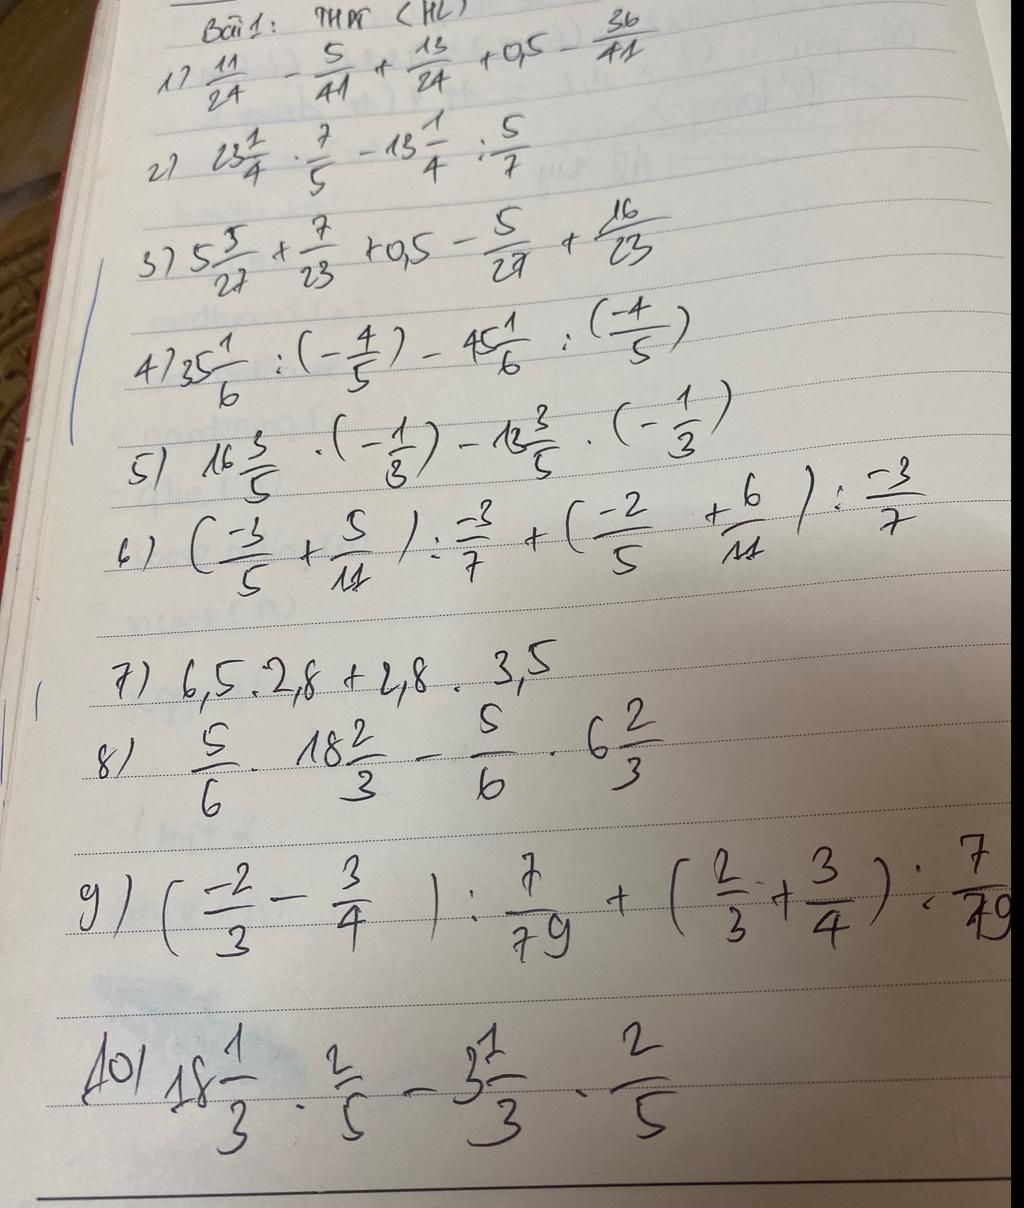 Bài 1: THPT (HL)
1) 11/24 - 5/41 + 13/24 + 0,5 - 36/41
2) 23 1/4 . 7/5 - 13 1/4 : 5/7
3) 5 5/27 + 7/23 + 0,5 - 5/27 + 16/23
4) 35 1/6 : (-4/5) - 45 1/6 : (-4/5)
5) 16 3/5 . (-1/3) - 13 3/5 . (-1/3)
6) (-3/5 + 5/11) : -3/7 + (-2/5 + 6/11) : -3/7
7) 6,5 . 2,8 + 2,8 . 3,5
8) 5/6 . 18 2/3 - 5/6 . 6 2/3
9) (-2/3 - 3/4) : 7/79 + (2/3 + 3/4) : 7/79
10) 18 1/3 . 2/5 - 3 1/3 . 2/5